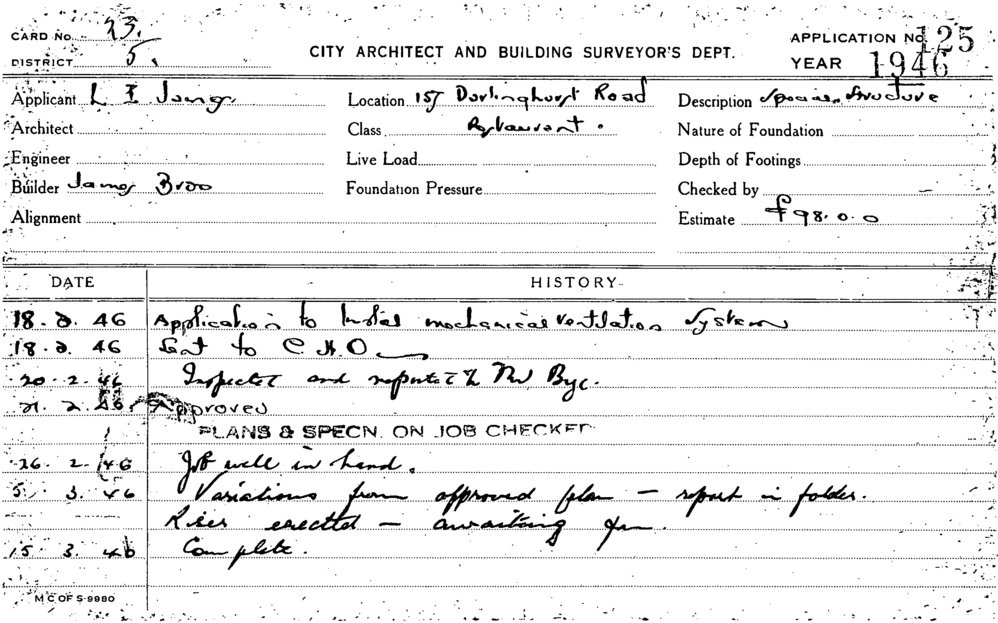 CARD No. 23.
DISTRICT 5.
CITY ARCHITECT AND BUILDING SURVEYOR'S DEPT.
APPLICATION No. 125
YEAR 1946
Applicant L I
Location 157 Darlinghurst Road
Description Special Structure
Architect
Class Restaurant.
Nature of Foundation
Engineer
Live Load
Depth of Footings
Builder James Bros
Foundation Pressure
Checked by
Alignment
Estimate £98.0.0
DATE
HISTORY
18. 2. 46 Application to Instal mechanical ventilation system
18. 2. 46 Sent to C.H.O
20. 2. 46 Inspected and reported to Mr
21. 2. 46. Approved
PLANS & SPECN. ON JOB CHECKED
26. 2. 46 Job well in hand.
5. 3. 46 Variations from approved plan — report in folder.
Riser erected — awaiting fan.
15. 3. 46 Complete.
M C OF S-9980